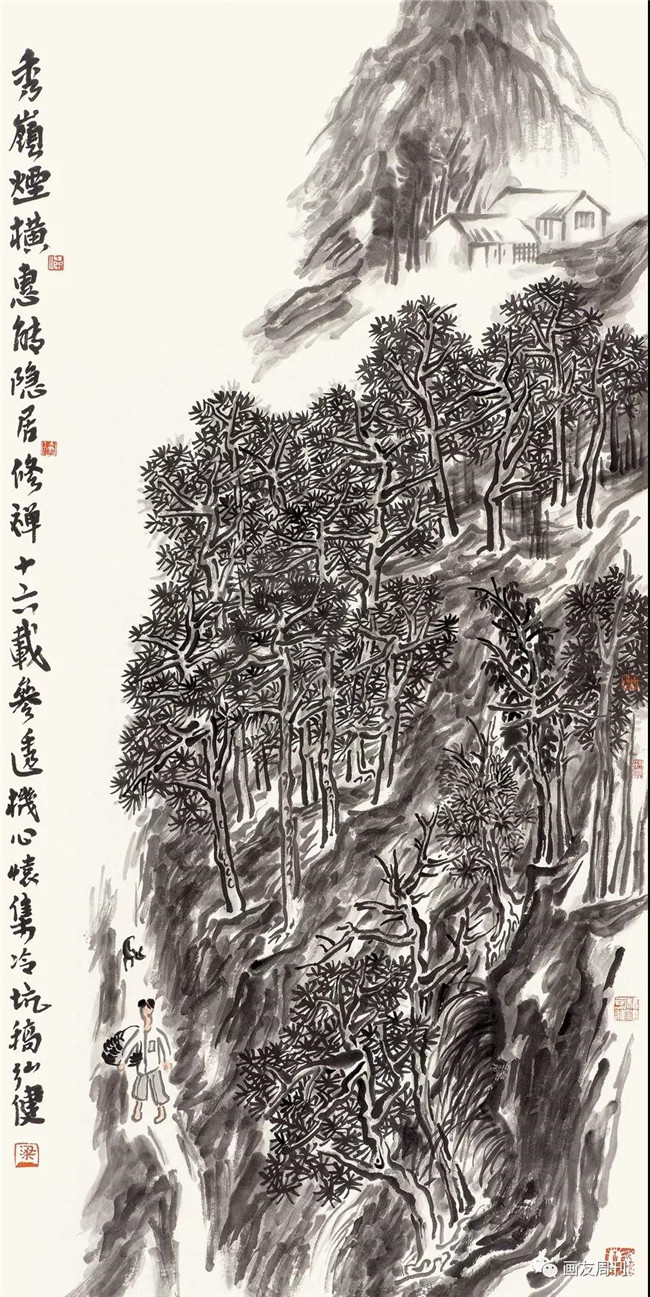 秀嶺煙横惠能隐居修禪十六載参透機心懷集冷坑稿弘健
梁
画友周刊